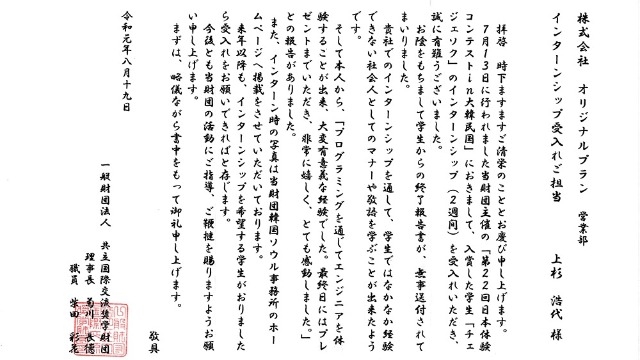 株式会社　オリジナルプラン　営業部
インターンシップ受入れご担当　上杉　浩代　様
拝啓　時下ますますご清栄のこととお慶び申し上げます。
7月13日に行われました当財団主催の「第22回日本体験
コンテストin大韓民国」におきまして、入賞した学生「チェ
ジェソク」のインターンシップ（2週間）を受入れいただき、
誠に有難うございました。
お陰をもちまして学生からの終了報告書が、無事送付されて
まいりました。
貴社でのインターンシップを通して、学生ではなかなか経験
できない社会人としてのマナーや敬語を学ぶことが出来たよう
です。
そして本人から、「プログラミングを通じてエンジニアを体
験することが出来、大変有意義な経験でした。最終日にはプレ
ゼントまでいただき、非常に嬉しく、とても感動しました。」
との報告がありました。
また、インターン時の写真は当財団韓国ソウル事務所のホー
ムページへ掲載をさせていただいております。
来年以降も、インターンシップを希望する学生がおりました
ら受入れをお願いできればと存じます。
今後とも当財団の活動にご指導、ご鞭撻を賜りますようお願
い申し上げます。
まずは、略儀ながら書中をもって御礼申し上げます。
敬具
令和元年八月十九日
一般財団法人　共立国際交流奨学財団
理事長　菊川　長徳
職員　柴田　彩花